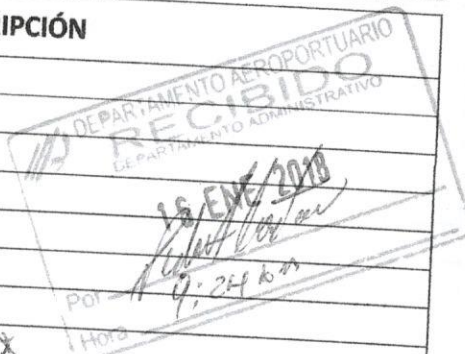 IPCIÓN
DEPARTAMENTO AEROPORTUARIO
RECIBIDO
DEPARTAMENTO ADMINISTRATIVO
16 ENE 2018
Por
9:24
Hora